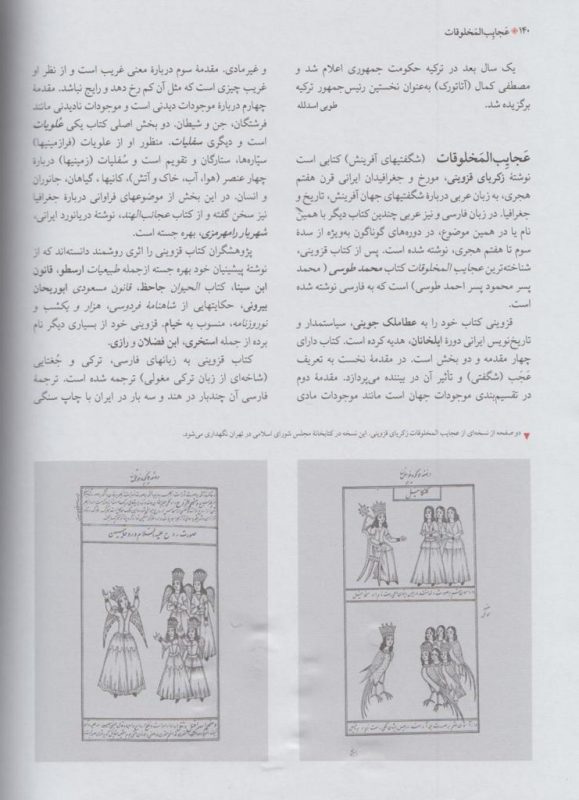 ۱۴۰ * عَجایِب‌المَخلوقات
یک سال بعد در ترکیه حکومت جمهوری اعلام شد و
مصطفی کمال (آتاتورک) به‌عنوان نخستین رئیس‌جمهور ترکیه
برگزیده شد. طوبی اسدلله
عَجایِب‌المَخلوقات (شگفتیهای آفرینش) کتابی است
نوشتهٔ زکریای قزوینی، مورخ و جغرافیدان ایرانی قرن هفتم
هجری، به زبان عربی دربارهٔ شگفتیهای جهان آفرینش، تاریخ و
جغرافیا. در زبان فارسی و نیز عربی چندین کتاب دیگر با همین
نام یا در همین موضوع، در دوره‌های گوناگون به‌ویژه از سدهٔ
سوم تا هفتم هجری، نوشته شده است. پس از کتاب قزوینی،
شناخته‌ترین عجایب المخلوقات کتاب محمد طوسی ( محمد
پسر محمود پسر احمد طوسی) است که به فارسی نوشته شده
است.
قزوینی کتاب خود را به عطاملک جوینی، سیاستمدار و
تاریخ‌نویس ایرانی دورهٔ ایلخانان، هدیه کرده است. کتاب دارای
چهار مقدمه و دو بخش است. در مقدمهٔ نخست به تعریف
عَجَب (شگفتی) و تأثیر آن در بیننده می‌پردازد. مقدمهٔ دوم
در تقسیم‌بندی موجودات جهان است مانند موجودات مادی
و غیرمادی. مقدمهٔ سوم دربارهٔ معنی غریب است و از نظر او
غریب چیزی است که مثل آن کم رخ دهد و رایج نباشد. مقدمهٔ
چهارم دربارهٔ موجودات دیدنی است و موجودات نادیدنی مانند
فرشتگان، جن و شیطان. دو بخش اصلی کتاب یکی عُلویات
است و دیگری سفلیات. منظور او از علویات (فرازمینیها)
سیّاره‌ها، ستارگان و تقویم است و سُفلیات (زمینیها) دربارهٔ
چهار عنصر (هوا، آب، خاک و آتش)، کانیها ، گیاهان، جانوران
و انسان. در این بخش از موضوعهای فراوانی دربارهٔ جغرافیا
نیز سخن گفته و از کتاب عجائب‌الهند، نوشتهٔ دریانورد ایرانی،
شهریار رامهرمزی، بهره جسته است.
پژوهشگران کتاب قزوینی را اثری روشمند دانسته‌اند که از
نوشتهٔ پیشینیان خود بهره جسته ازجمله طبیعیات ارسطو، قانون
ابن سینا، کتاب الحیوان جاحظ، قانون مسعودی ابوریحان
بیرونی، حکایتهایی از شاهنامهٔ فردوسی، هزار و یکشب و
نوروزنامه، منسوب به خیام. قزوینی خود از بسیاری دیگر نام
برده از جمله استخری، ابن فضلان و رازی.
کتاب قزوینی به زبانهای فارسی، ترکی و جُغتایی
(شاخه‌ای از زبان ترکی مغولی) ترجمه شده است. ترجمهٔ
فارسی آن چندبار در هند و سه بار در ایران با چاپ سنگی
دو صفحه از نسخه‌ای از عجایب المخلوقات زکریای قزوینی. این نسخه در کتابخانهٔ مجلس شورای اسلامی در تهران نگهداری می‌شود.